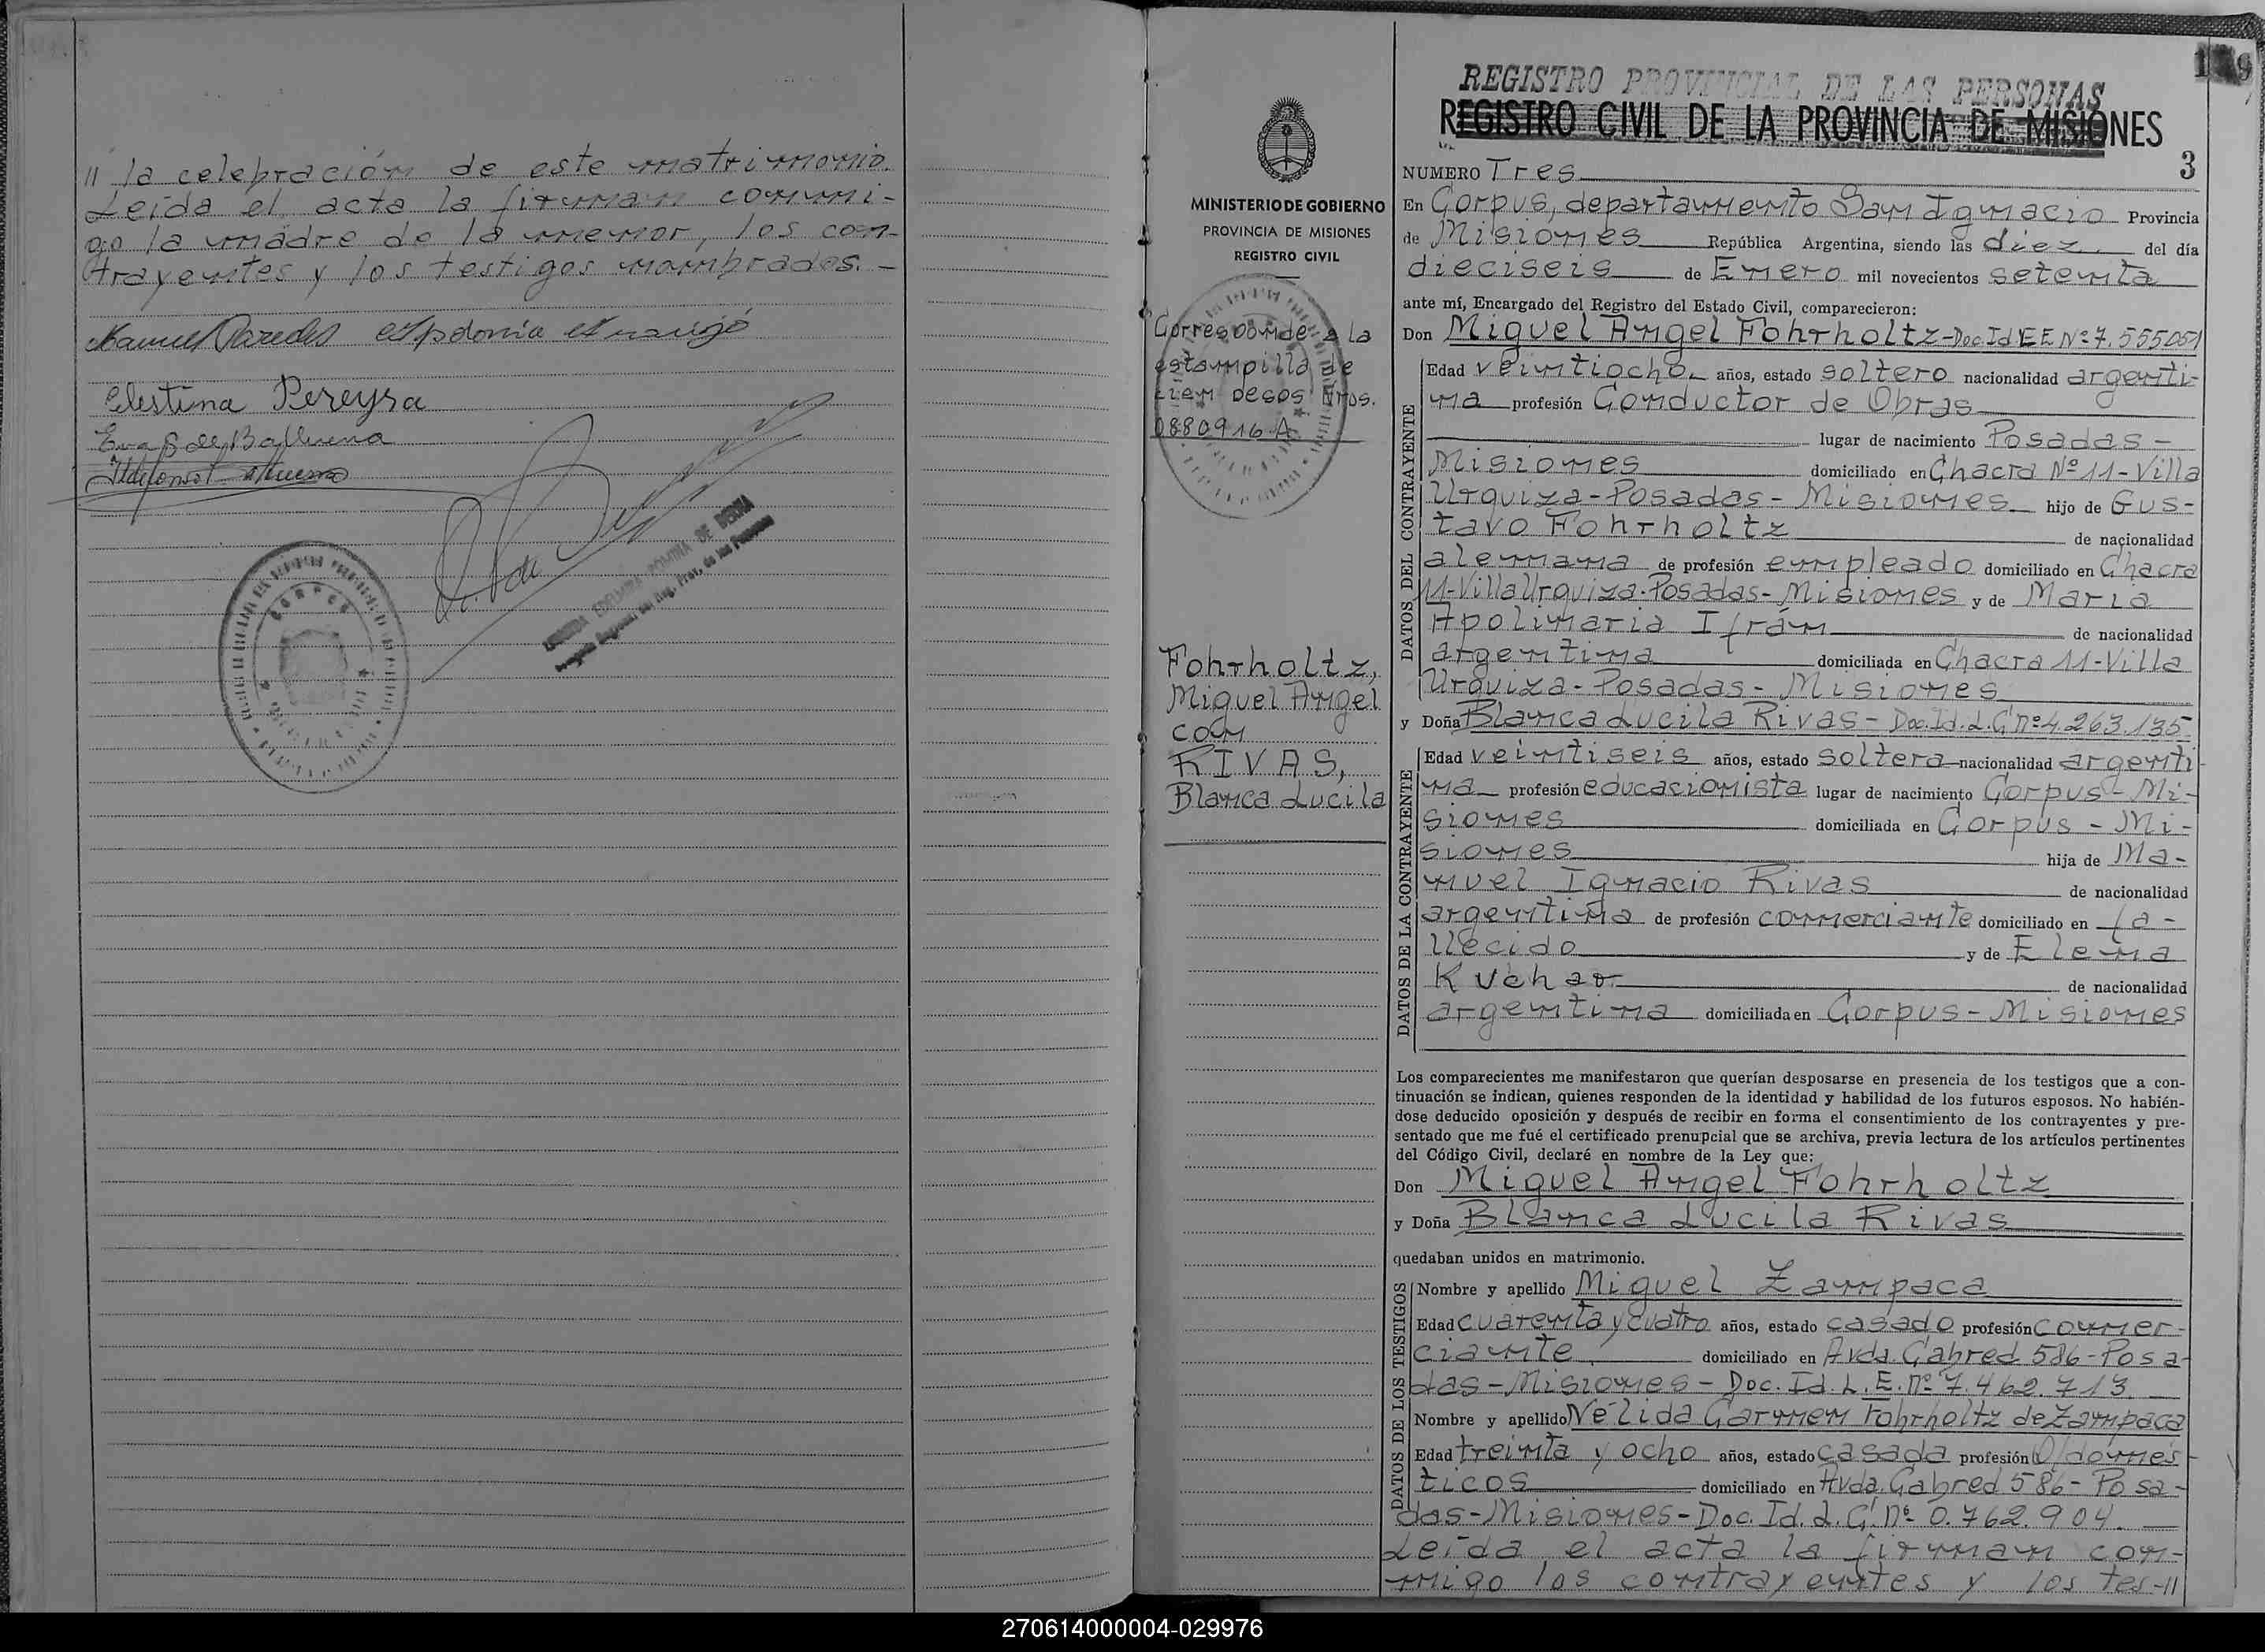 // la celebración de este matrimonio.
Leída el acta la firman conmi-
go la madre de la menor, los con-
trayentes y los testigos nombrados.-
Manuel Paredes
Celestina Pereyra
Eva G de Balbuena
CORPUS
MINISTERIO DE GOBIERNO
PROVINCIA DE MISIONES
REGISTRO CIVIL
Corresponde a la
estampilla de
cien pesos Nros.
0880916 A
Fohrholtz,
Miguel Angel
con
RIVAS,
Blanca Lucila
REGISTRO PROVINCIAL DE LAS PERSONAS
REGISTRO CIVIL DE LA PROVINCIA DE MISIONES
3
NUMERO Tres
En Corpus, departamento San Ignacio Provincia
de Misiones República Argentina, siendo las diez del día
dieciseis de Enero mil novecientos setenta
ante mí, Encargado del Registro del Estado Civil, comparecieron:
Don Miguel Angel Fohrholtz-Doc.Id EE Nº 7.555051
DATOS DEL CONTRAYENTE
Edad veintiocho años, estado soltero nacionalidad argenti-
na profesión Conductor de Obras
lugar de nacimiento Posadas -
Misiones domiciliado en Chacra Nº 11-Villa
Urquiza-Posadas-Misiones hijo de Gus-
tavo Fohrholtz de nacionalidad
alemana de profesión empleado domiciliado en Chacra
11-Villa Urquiza-Posadas-Misiones y de María
Apolinaria Ifrán de nacionalidad
argentina domiciliada en Chacra 11-Villa
Urquiza-Posadas-Misiones
y Doña Blanca Lucila Rivas-Doc.Id.L.C nº 4.263.135
DATOS DE LA CONTRAYENTE
Edad veintiseis años, estado soltera nacionalidad argenti
na profesión educacionista lugar de nacimiento Corpus-Mi-
siones domiciliada en Corpus-Mi-
siones hija de Ma-
nuel Ignacio Rivas de nacionalidad
argentina de profesión comerciante domiciliado en fa-
llecido y de Elena
Kuchar de nacionalidad
argentina domiciliada en Corpus-Misiones
Los comparecientes me manifestaron que querían desposarse en presencia de los testigos que a con-
tinuación se indican, quienes responden de la identidad y habilidad de los futuros esposos. No habién-
dose deducido oposición y después de recibir en forma el consentimiento de los contrayentes y pre-
sentado que me fué el certificado prenupcial que se archiva, previa lectura de los artículos pertinentes
del Código Civil, declaré en nombre de la Ley que:
Don Miguel Angel Fohrholtz
y Doña Blanca Lucila Rivas
quedaban unidos en matrimonio.
DATOS DE LOS TESTIGOS
Nombre y apellido Miguel Zampaca
Edad cuarenta y cuatro años, estado casado profesión comer-
ciante domiciliado en Avda. Cabred 586-Posa-
das-Misiones-Doc. Id. L.E. nº 7.462.713.
Nombre y apellido Nélida Carmen Fohrholtz de Zampaca
Edad treinta y ocho años, estado casada profesión Q/domés
ticos domiciliado en Avda. Cabred 586-Posa-
das-Misiones-Doc. Id. L.C. nº 0.762.904.
Leída el acta la firman con-
migo los contrayentes y los tes-//
270614000004-029976